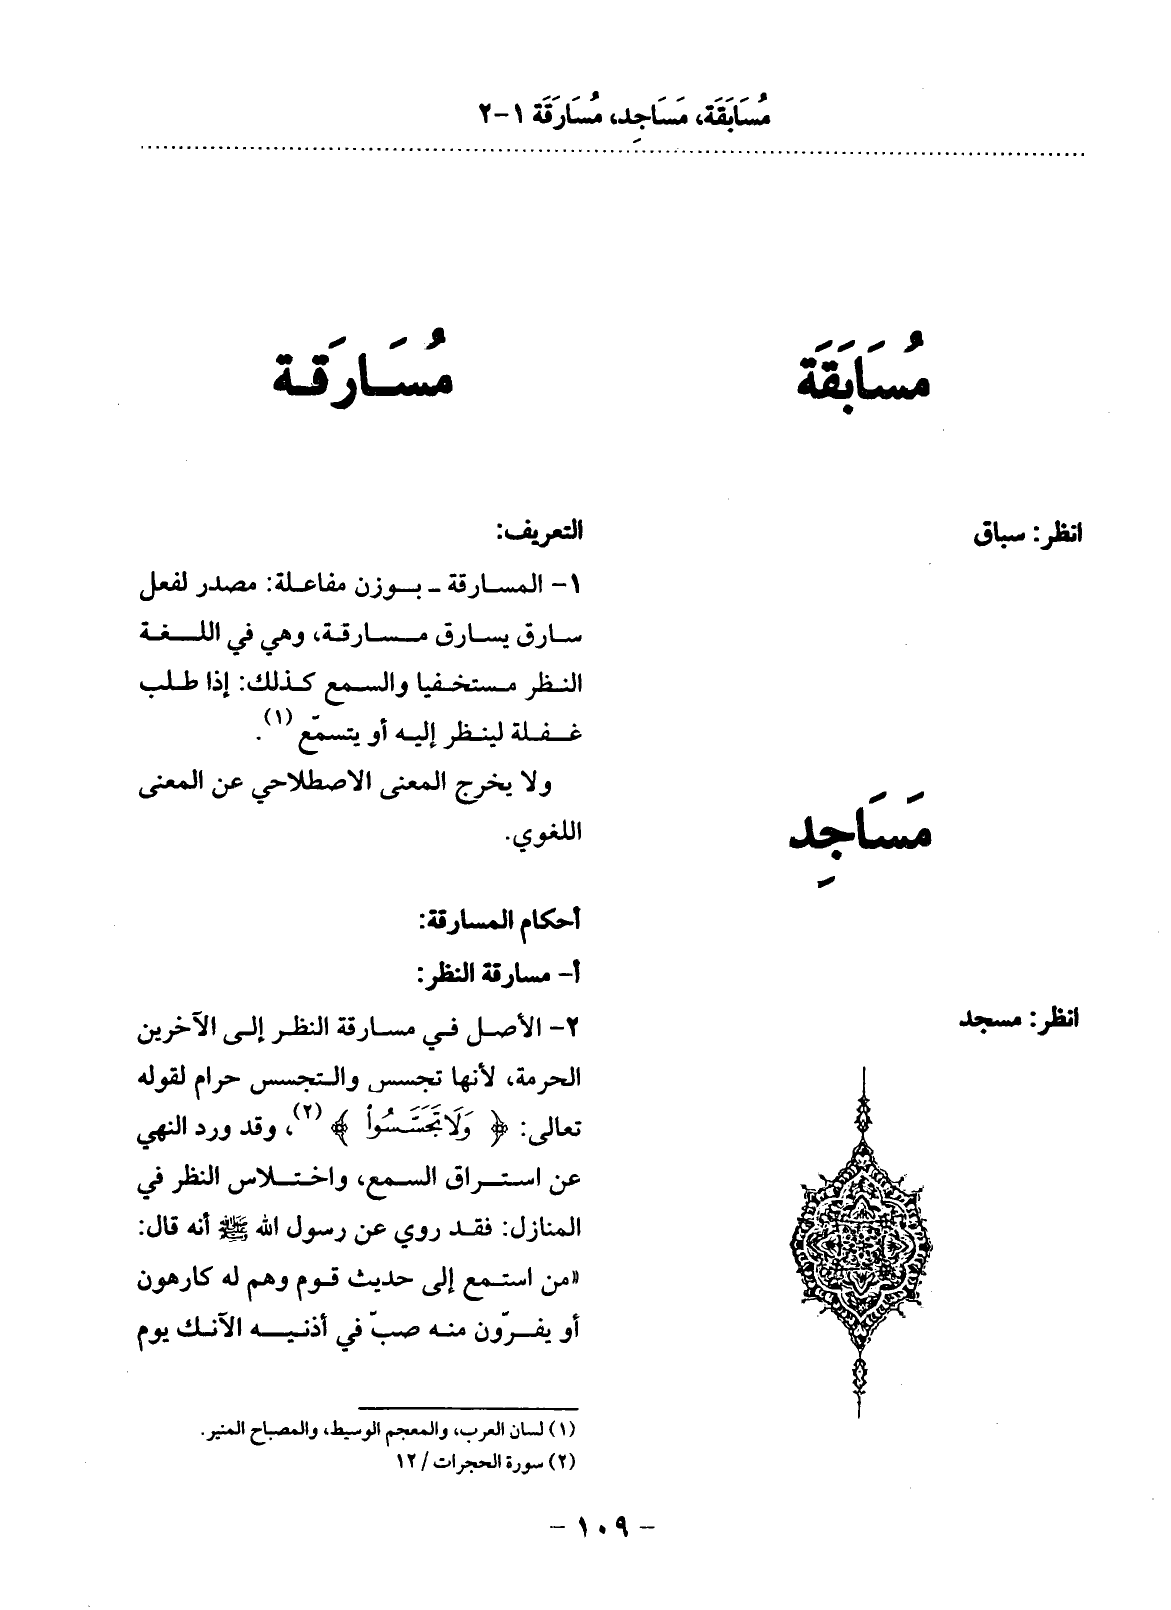 مُسَابَقَة، مَسَاجِد، مُسَارَقَة ١-٢
مُسَابَقَة
انظر: سباق
مَسَاجِد
انظر: مسجد
مُسَارَقَة
التعريف:
١- المسارقة ـ بوزن مفاعلة: مصدر لفعل
سارق يسارق مسارقة، وهي في اللغة
النظر مستخفيا والسمع كذلك: إذا طلب
غفلة لينظر إليه أو يتسمّع (١).
ولا يخرج المعنى الاصطلاحي عن المعنى
اللغوي.
أحكام المسارقة:
أ- مسارقة النظر:
٢- الأصل في مسارقة النظر إلى الآخرين
الحرمة، لأنها تجسس والتجسس حرام لقوله
تعالى: ﴿ وَلَا تَجَسَّسُوا۟ ﴾ (٢)، وقد ورد النهي
عن استراق السمع، واختلاس النظر في
المنازل: فقد روي عن رسول الله ﷺ أنه قال:
«من استمع إلى حديث قوم وهم له كارهون
أو يفرّون منه صبّ في أذنيه الآنك يوم
(١) لسان العرب، والمعجم الوسيط، والمصباح المنير.
(٢) سورة الحجرات / ١٢
- ١٠٩ -